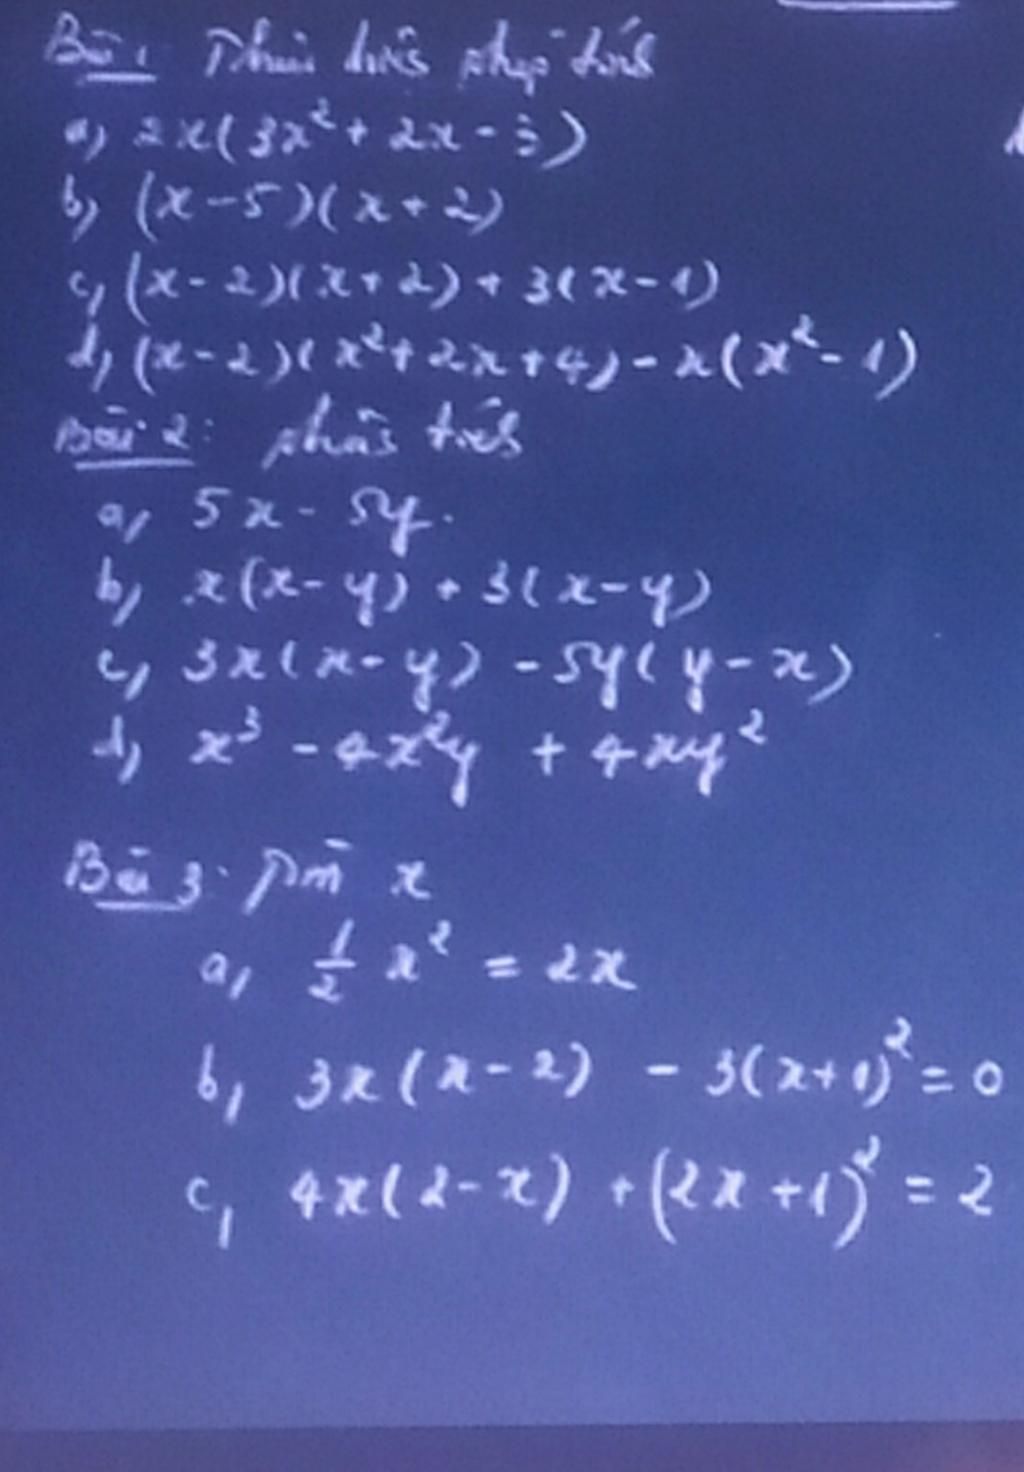 Bài 1 Thực hiện phép tính
a, 2x(3x² + 2x - )
b, (x-5)(x+2)
c, (x-2)(x+2) + 3(x-1)
d, (x-2)(x²+2x+4) - x(x²-1)
Bài 2: phân tích
a, 5x - 5y.
b, x(x-y) + 3(x-y)
c, 3x(x-y) - 5y(y-x)
d, x³ - 4x²y + 4xy²
Bài 3: Tìm x
a, 1/2 x² = 2x
b, 3x(x-2) - 3(x+1)² = 0
c, 4x(2-x) + (2x+1)² = 2